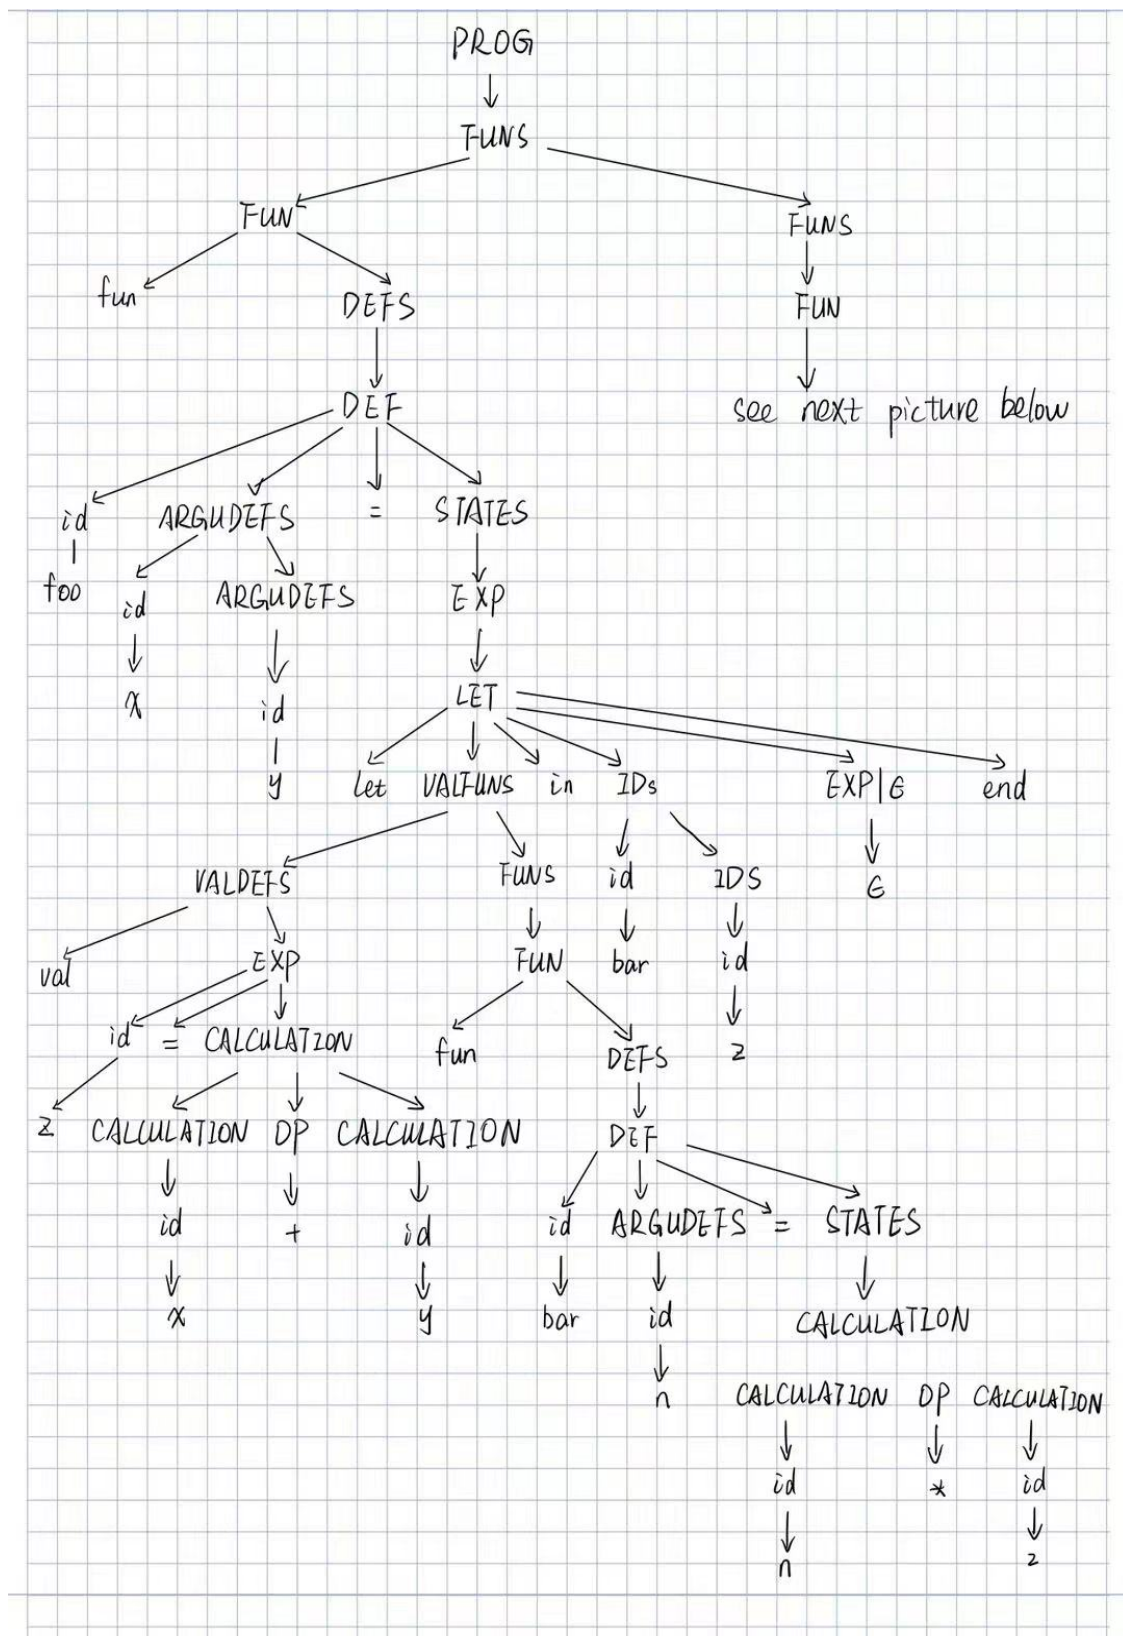 PROG
FUNS
FUN FUNS
fun DEFS FUN
DEF see next picture below
id ARGUDEFS = STATES
foo id ARGUDEFS EXP
x id LET
y let VALFUNS in IDs EXP|ϵ end
VALDEFS FUNS id IDS ϵ
val EXP FUN bar id
id = CALCULATION fun DEFS z
z CALCULATION OP CALCULATION DEF
id + id id ARGUDEFS = STATES
x y bar id CALCULATION
n CALCULATION OP CALCULATION
id * id
n z